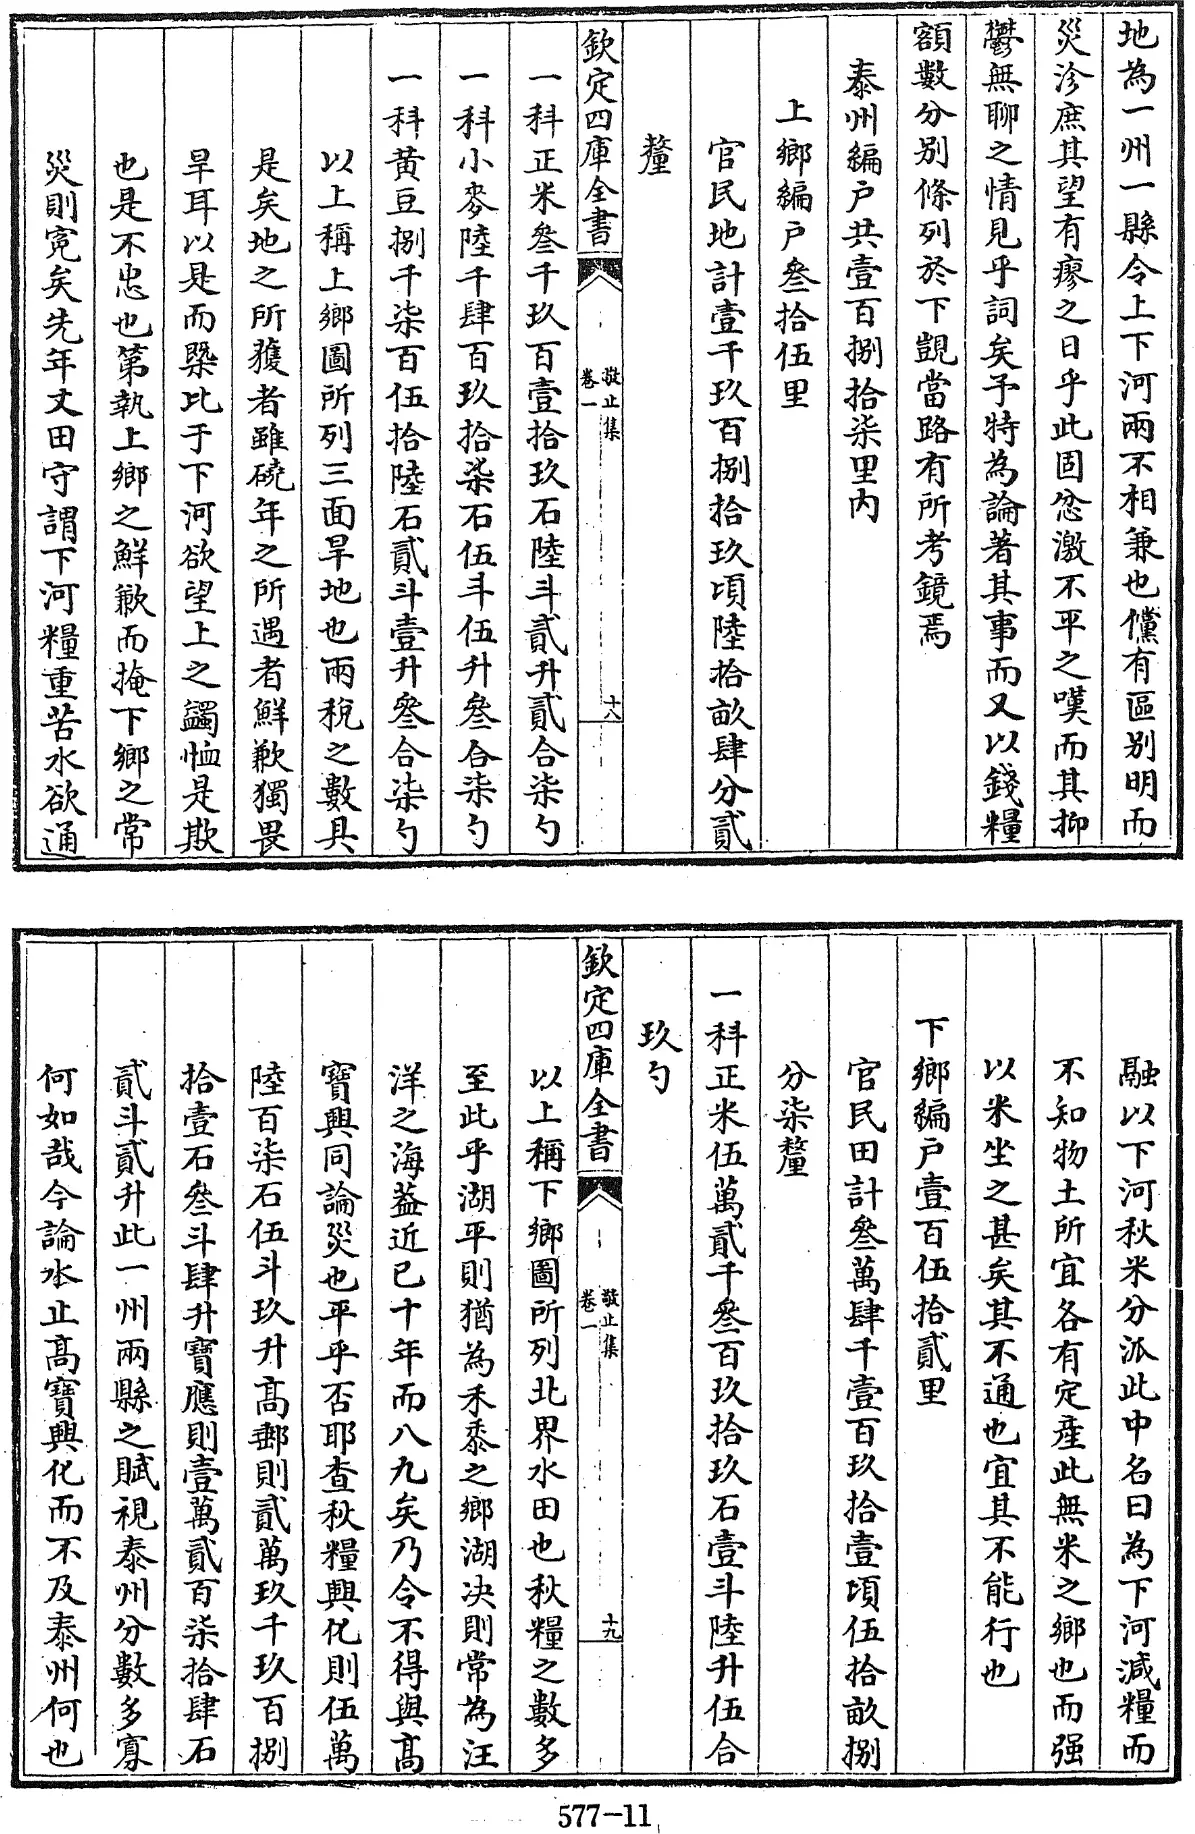 地為一州一縣令上下河兩不相兼也儻有區别明而
災沴庶其望有瘳之日乎此固忿激不平之嘆而其抑
鬱無聊之情見乎詞矣予特為論著其事而又以錢糧
額數分别條列於下覬當路有所考鏡焉
泰州編户共壹百捌拾柒里内
上鄉編户叄拾伍里
官民地計壹千玖百捌拾玖頃陸拾畝肆分貳
釐
欽定四庫全書
敬止集
卷一
十八
一科正米叄千玖百壹拾玖石陸斗貳升貳合柒勺
一科小麥陸千肆百玖拾柒石伍斗伍升叄合柒勺
一科黄豆捌千柒百伍拾陸石貳斗壹升叄合柒勺
以上稱上鄉圖所列三面旱地也兩税之數具
是矣地之所穫者雖磽年之所遇者鮮歉獨畏
旱耳以是而槩比于下河欲望上之蠲恤是欺
也是不忠也第執上鄉之鮮歉而掩下鄉之常
災則寃矣先年丈田守謂下河糧重苦水欲通
融以下河秋米分派此中名曰為下河減糧而
不知物土所宜各有定産此無米之鄉也而强
以米坐之甚矣其不通也宜其不能行也
下鄉編户壹百伍拾貳里
官民田計叄萬肆千壹百玖拾壹頃伍拾畝捌
分柒釐
一科正米伍萬貳千叄百玖拾玖石壹斗陸升伍合
玖勺
欽定四庫全書
敬止集
卷一
十九
以上稱下鄉圖所列北界水田也秋糧之數多
至此乎湖平則猶為禾黍之鄉湖决則常為汪
洋之海葢近已十年而八九矣乃令不得與高
寶興同論災也平乎否耶查秋糧興化則伍萬
陸百柒石伍斗玖升高郵則貳萬玖千玖百捌
拾壹石叄斗肆升寶應則壹萬貳百柒拾肆石
貳斗貳升此一州兩縣之賦視泰州分數多寡
何如哉今論水止高寶興化而不及泰州何也
577-11